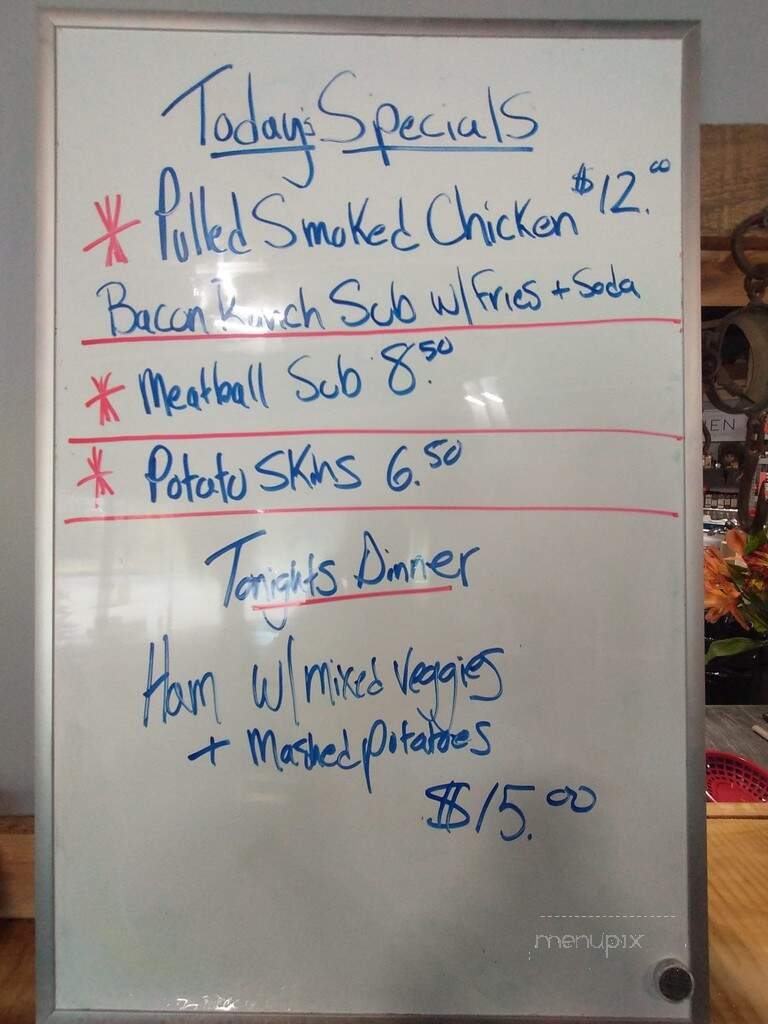 Today's Specials
* Pulled Smoked Chicken $12.00
Bacon Ranch Sub w/Fries + Soda
* Meatball Sub 8.50
* Potato Skins 6.50
Tonights Dinner
Ham w/mixed veggies
+ Mashed potatoes
$15.00
EN
menupix